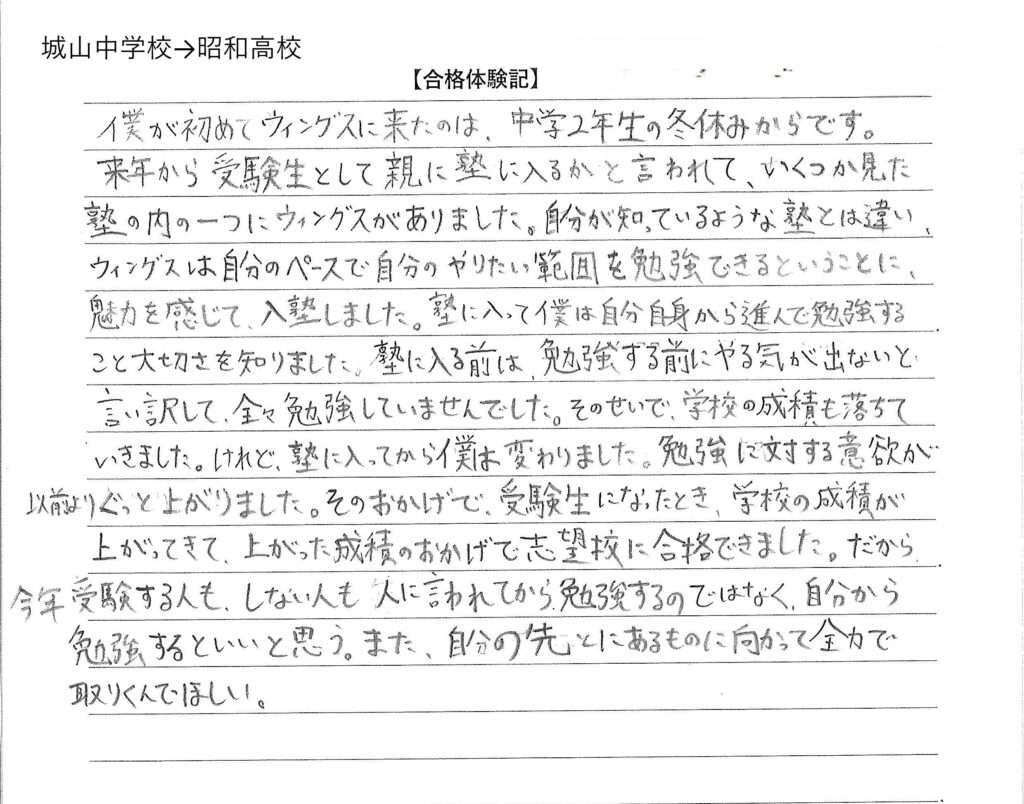 城山中学校→昭和高校
【合格体験記】
僕が初めてウィングスに来たのは、中学2年生の冬休みからです。
来年から受験生として親に塾に入るかと言われて、いくつか見た
塾の内の一つにウィングスがありました。自分が知っているような塾とは違い、
ウィングスは自分のペースで自分のやりたい範囲を勉強できるということに、
魅力を感じて、入塾しました。塾に入って僕は自分自身から進んで勉強する
こと大切さを知りました。塾に入る前は、勉強する前にやる気が出ないと
言い訳して、全々勉強していませんでした。そのせいで、学校の成積も落ちて
いきました。けれど、塾に入ってから僕は変わりました。勉強に対する意欲が
以前よりぐっと上がりました。そのおかげで、受験生になったとき、学校の成積が
上がってきて、上がった成積のおかげで志望校に合格できました。だから、
今年受験する人も、しない人も人に言われてから勉強するのではなく、自分から
勉強するといいと思う。また、自分の先とにあるものに向かって全力で
取りくんでほしい。